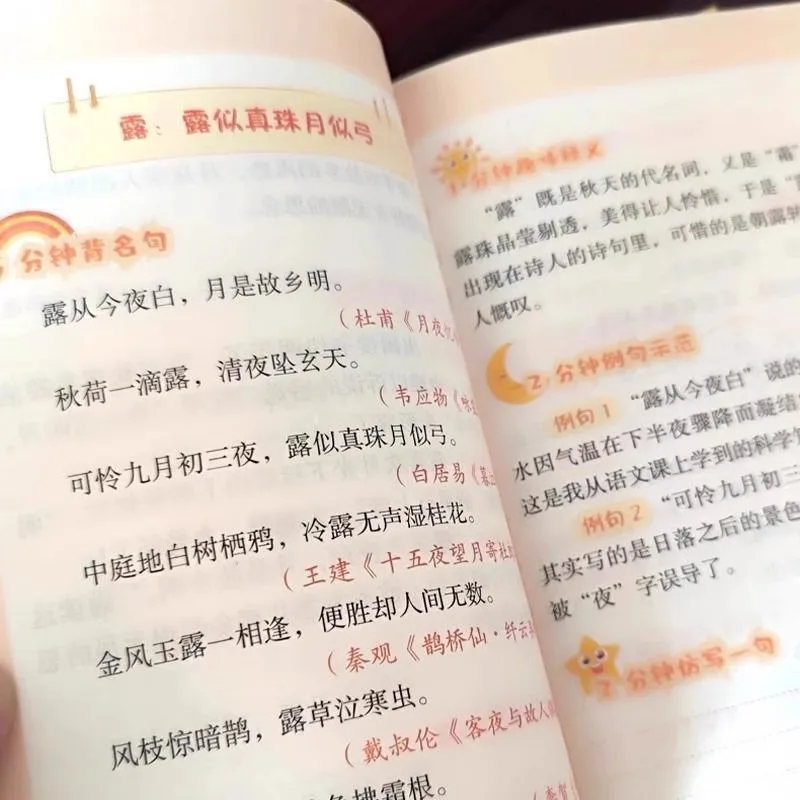 露：露似真珠月似弓
分钟背名句
露从今夜白，月是故乡明。
（杜甫《月夜忆
秋荷一滴露，清夜坠玄天。
（韦应物《咏
可怜九月初三夜，露似真珠月似弓。
（白居易《暮
中庭地白树栖鸦，冷露无声湿桂花。
（王建《十五夜望月寄杜
金风玉露一相逢，便胜却人间无数。
（秦观《鹊桥仙·纤云
风枝惊暗鹊，露草泣寒虫。
（戴叔伦《客夜与故人
拂霜根。
1分钟趣味释义
“露”既是秋天的代名词，又是“霜”
露珠晶莹剔透，美得让人怜惜，于是“
出现在诗人的诗句里，可惜的是朝露转
人慨叹。
2分钟例句示范
例句1 “露从今夜白”说的
水因气温在下半夜骤降而凝结
这是我从语文课上学到的科学
例句2 “可怜九月初三
其实写的是日落之后的景色
被“夜”字误导了。
2分钟仿写一句